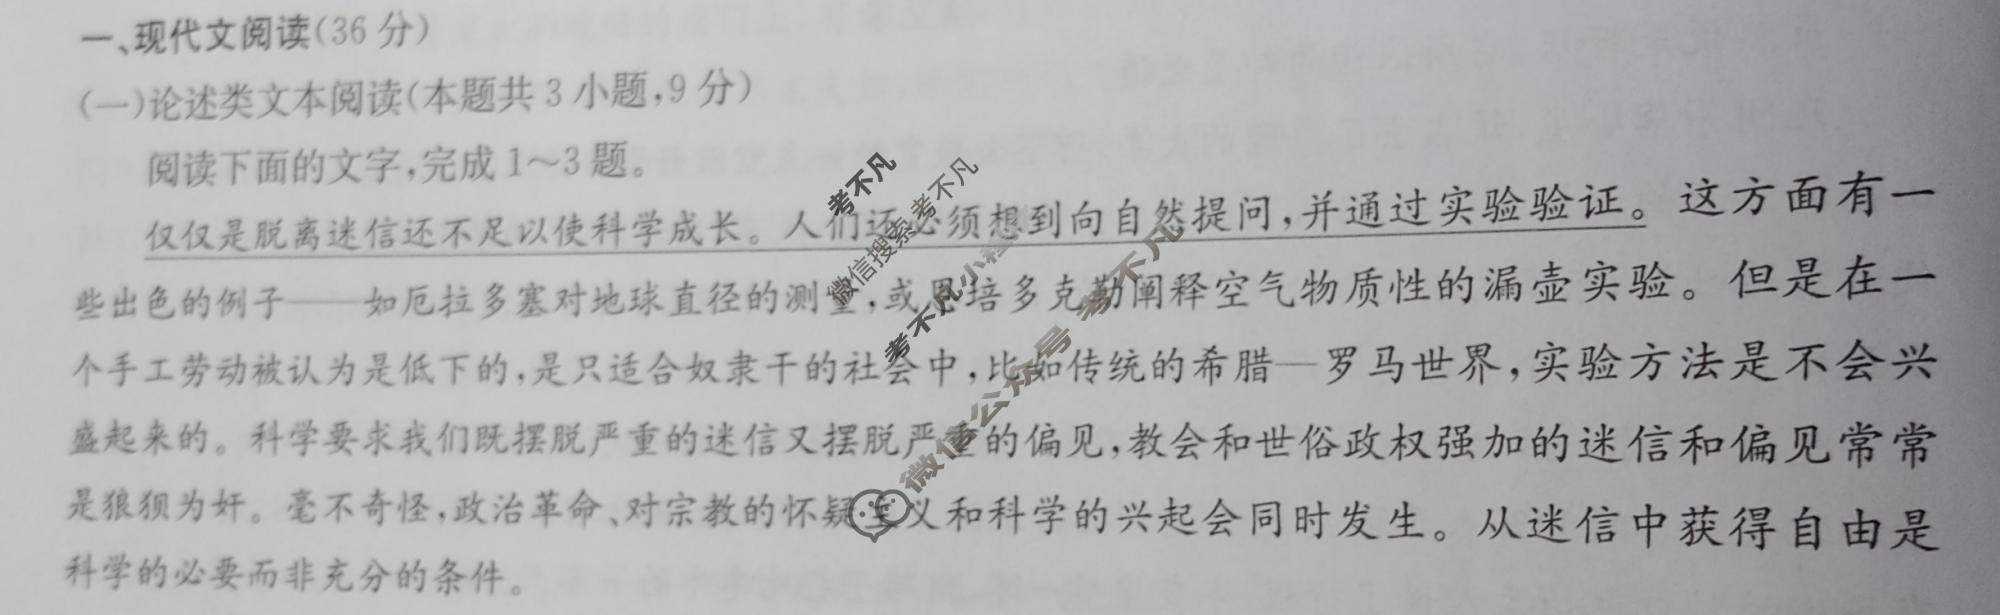 一、现代文阅读(36分)
(一)论述类文本阅读(本题共3小题,9分)
阅读下面的文字,完成1～3题。
仅仅是脱离迷信还不足以使科学成长。人们还必须想到向自然提问,并通过实验验证。这方面有一
些出色的例子——如厄拉多塞对地球直径的测量,或恩培多克勒阐释空气物质性的漏壶实验。但是在一
个手工劳动被认为是低下的,是只适合奴隶干的社会中,比如传统的希腊—罗马世界,实验方法是不会兴
盛起来的。科学要求我们既摆脱严重的迷信又摆脱严重的偏见,教会和世俗政权强加的迷信和偏见常常
是狼狈为奸。毫不奇怪,政治革命、对宗教的怀疑主义和科学的兴起会同时发生。从迷信中获得自由是
科学的必要而非充分的条件。
考不凡
微信搜索考不凡
考不凡小程
微信公众号 考不凡